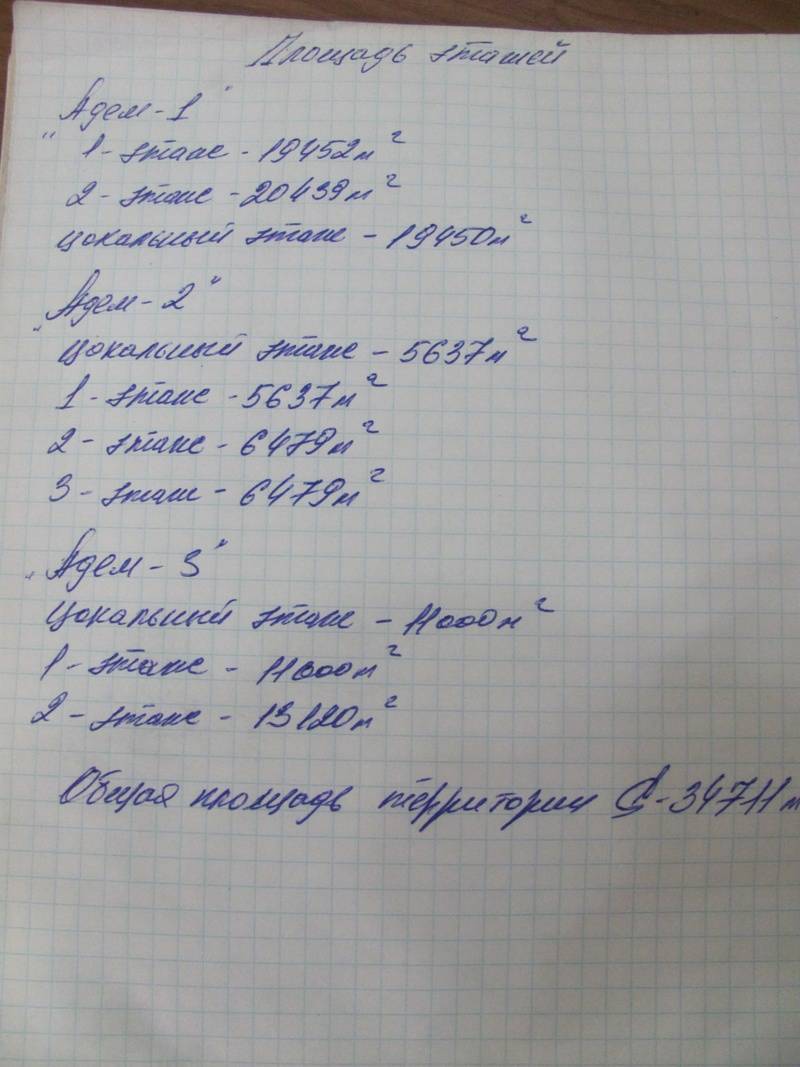 Площадь этажей
"Адем-1"
1-этаж - 19452м²
2-этаж - 20439м²
цокальный этаж - 19450м²
"Адем-2"
цокальный этаж - 5637м²
1-этаж - 5637м²
2-этаж - 6479м²
3-этаж - 6479м²
"Адем-3"
цокальный этаж - 11000м²
1-этаж - 11000м²
2-этаж - 13120м²
Общая площадь территории S-34711м